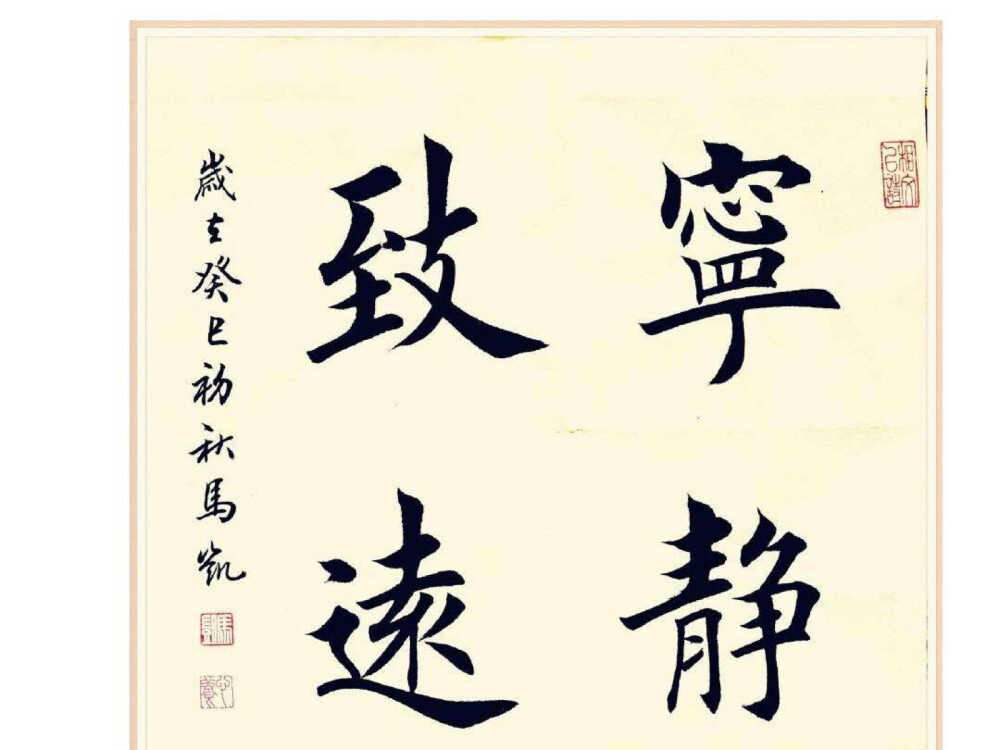 寧静
致遠
歲在癸巳初秋馬凱